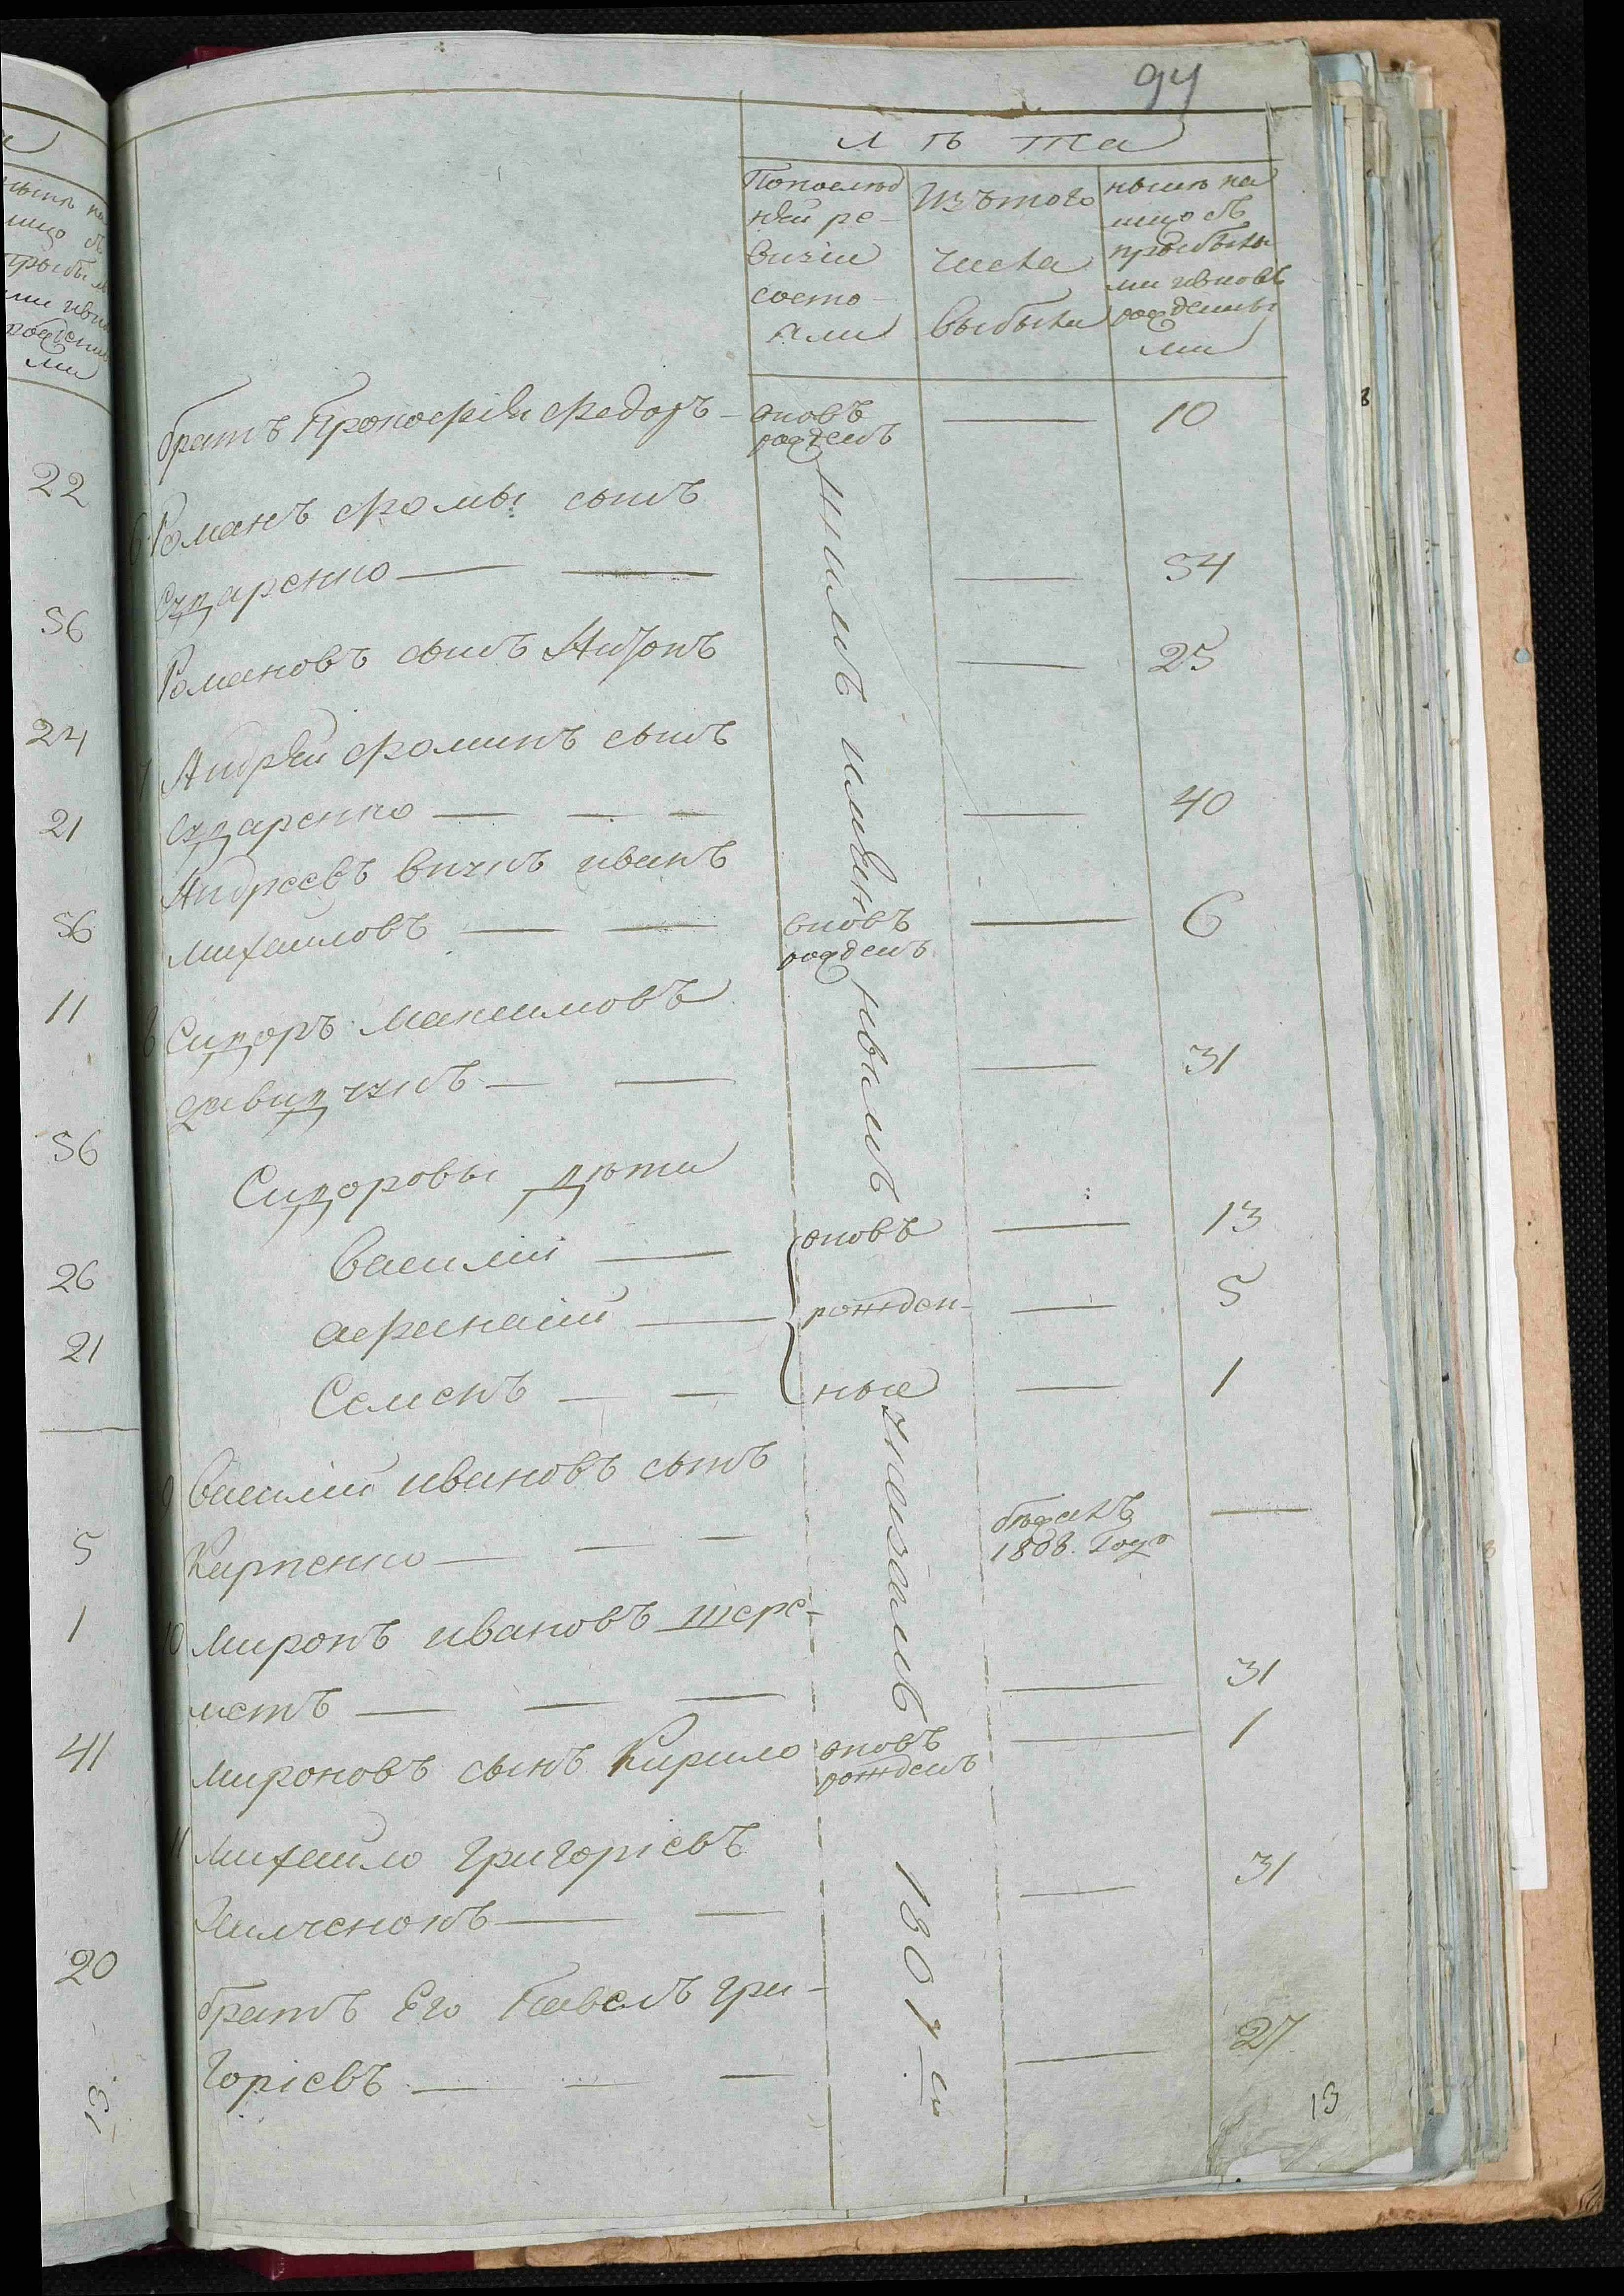 94
лѣта
Попослѣд
ней ре-
визіи
состо-
яли
Изътого
числа
выбыло
нынѣ на
лицо съ
прыбылы
ми ивновь
рожденны
ми
братъ Прокофѣй Федоръ - вновь рожденъ — 10
6 Романъ Фомы сынъ
Сударенко — — — 54
Романовъ сынъ Антонъ — 25
7 Андрей Фоминъ сынъ
Сударенко — — — — 40
Андреевъ внукъ иванъ
михайловъ — — вновь рожденъ — 6
8 Сидоръ Максимовъ
давидчикъ — — — 31
Сидоровы дѣти
василій — вновь — 13
афанасій — рожден- — 5
Семенъ — — ные — 1
9 василій ивановъ сынъ
Карпенко — — — бѣжалъ 1808. Года —
10 миронъ ивановъ шере-
метъ — — — — 31
мироновъ сынъ Кирило вновь рожденъ — 1
11 михайло григоріевъ
Хилченокъ — — — 31
братъ Его Павелъ гри-
горіевъ — — — — 27
13
22
56
24
21
56
11
56
26
21
5
1
41
20
13.